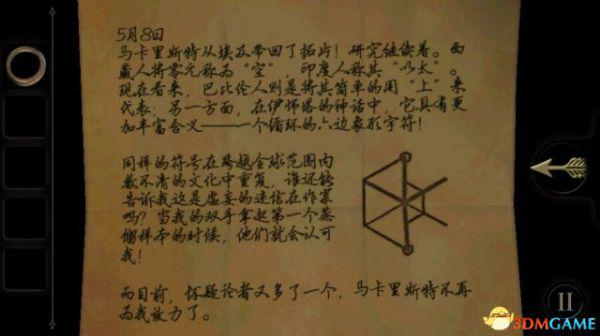 5月8日
马卡里斯特从埃及带回了拓片！研究继续着。西
藏人将零元称为“空”，印度人称其“以太”。
现在看来，巴比伦人则是将其简单的用“上”来
代表；另一方面，在伊师塔的神话中，它具有更
加丰富含义——一个循环的六边象形字符！
同样的符号在跨越全球范围内
数不清的文化中重复，谁还能
告诉我这是虚妄的迷信在作祟
吗？当我的双手拿起第一个蒸
馏样本的时候，他们就会认可
我！
而目前，怀疑论者又多了一个，马卡里斯特不再
为我效力了。
3DMGAME